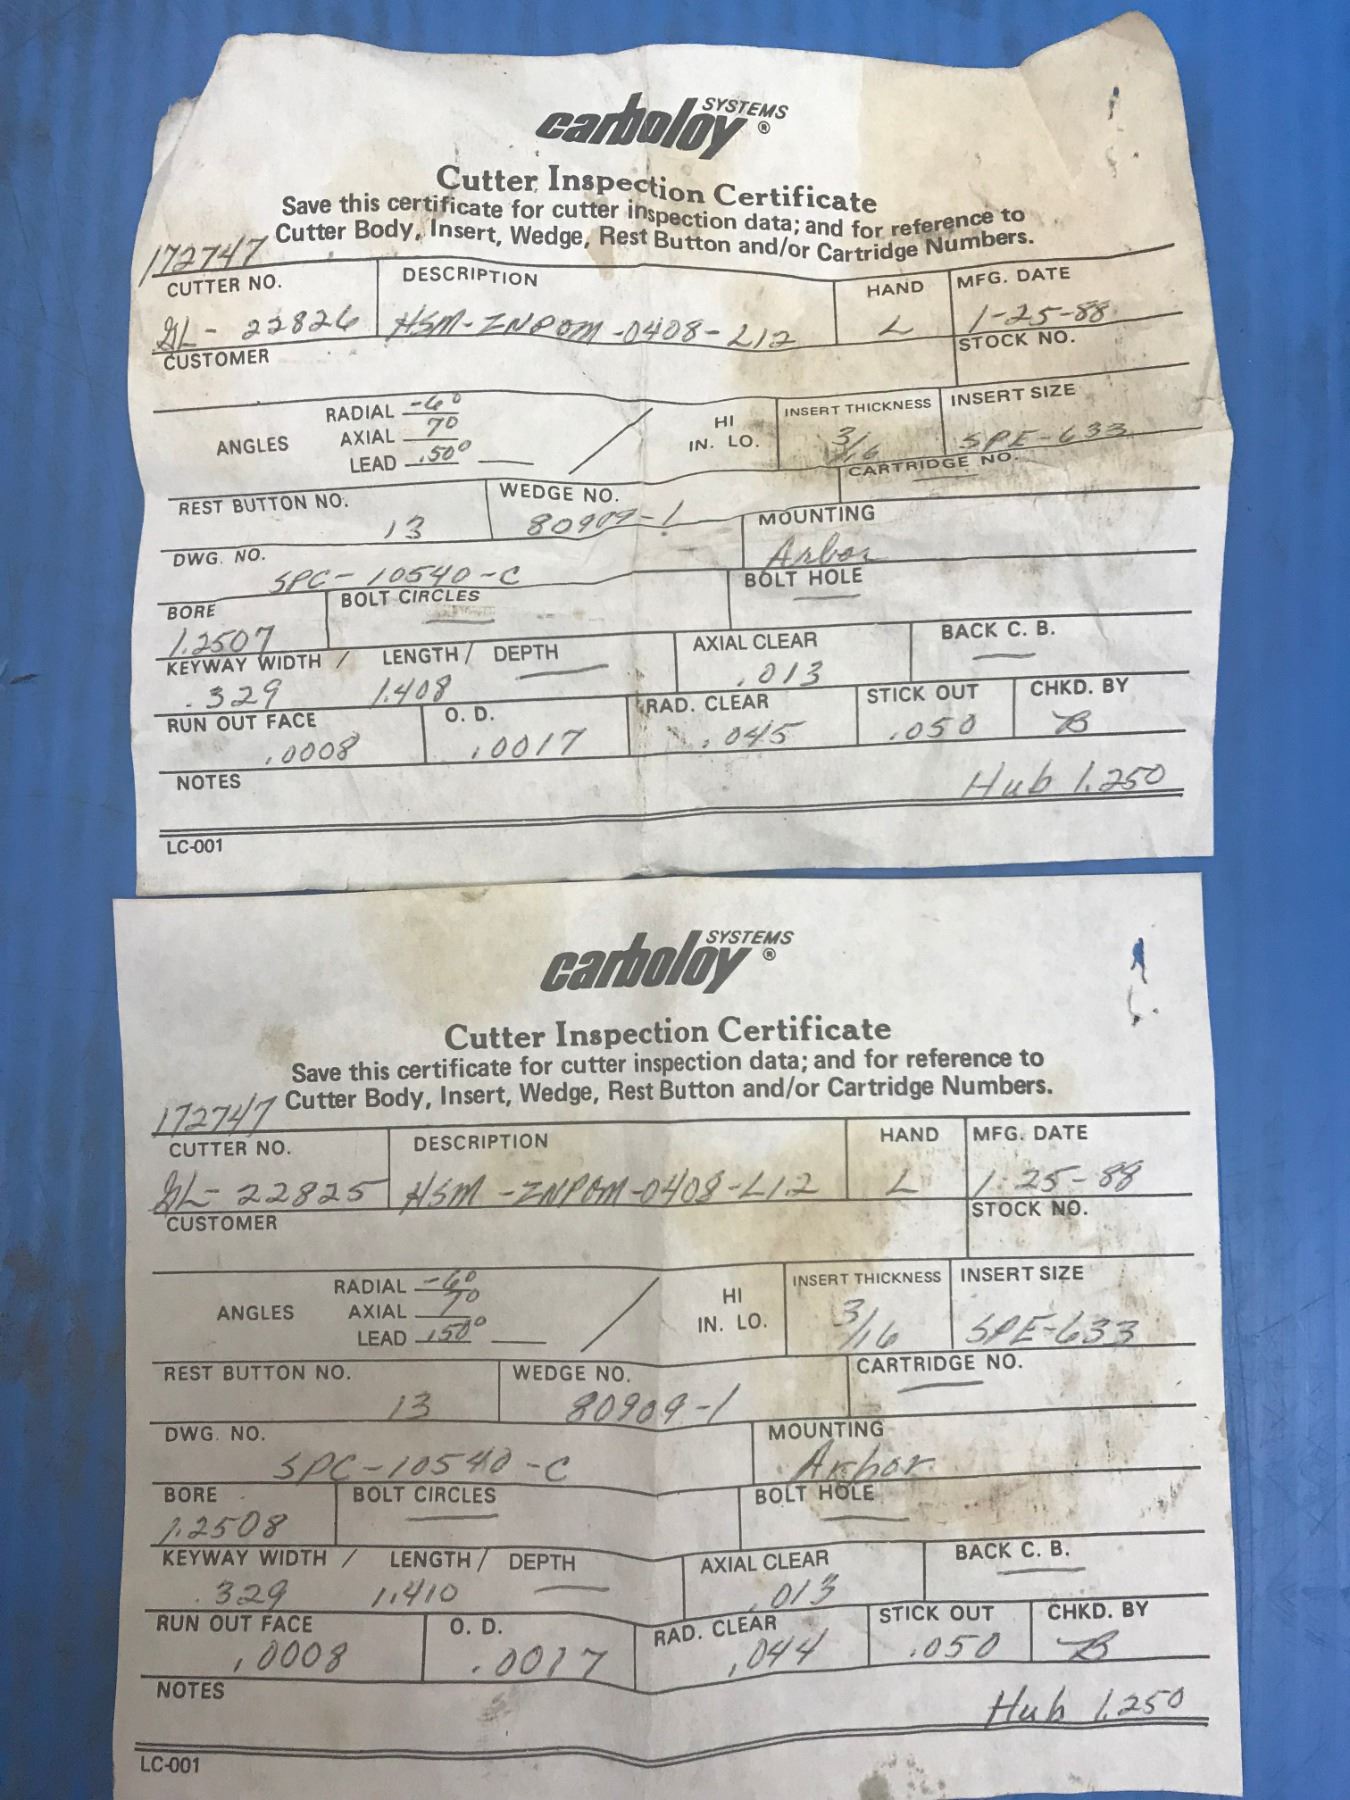 carboloy SYSTEMS ®
Cutter Inspection Certificate
Save this certificate for cutter inspection data; and for reference to
Cutter Body, Insert, Wedge, Rest Button and/or Cartridge Numbers.
172747
CUTTER NO. DESCRIPTION HAND MFG. DATE
GL-22826 HSM-ZNPOM-0408-L12 L 1-25-88
CUSTOMER STOCK NO.
RADIAL -6° HI INSERT THICKNESS INSERT SIZE
ANGLES AXIAL 7° / IN. LO. 3/16 SPE-633
LEAD .50° CARTRIDGE NO.
REST BUTTON NO. WEDGE NO.
13 80909-1 MOUNTING
DWG. NO. Arbor
SPC-10540-C BOLT HOLE
BORE BOLT CIRCLES
1.2507 AXIAL CLEAR BACK C. B.
KEYWAY WIDTH / LENGTH / DEPTH
.329 1.408 .013
RUN OUT FACE O. D. RAD. CLEAR STICK OUT CHKD. BY
.0008 .0017 .045 .050 B
NOTES Hub 1.250
LC-001
carboloy SYSTEMS ®
Cutter Inspection Certificate
Save this certificate for cutter inspection data; and for reference to
Cutter Body, Insert, Wedge, Rest Button and/or Cartridge Numbers.
172747
CUTTER NO. DESCRIPTION HAND MFG. DATE
GL-22825 HSM-ZNPOM-0408-L12 L 1-25-88
CUSTOMER STOCK NO.
RADIAL -6° HI INSERT THICKNESS INSERT SIZE
ANGLES AXIAL 7° / IN. LO. 3/16 SPE-633
LEAD .50°
REST BUTTON NO. WEDGE NO. CARTRIDGE NO.
13 80909-1
DWG. NO. MOUNTING
SPC-10540-C Arbor
BORE BOLT CIRCLES BOLT HOLE
1.2508
KEYWAY WIDTH / LENGTH / DEPTH AXIAL CLEAR BACK C. B.
.329 1.410 .013
RUN OUT FACE O. D. RAD. CLEAR STICK OUT CHKD. BY
.0008 .0017 .044 .050 B
NOTES Hub 1.250
LC-001